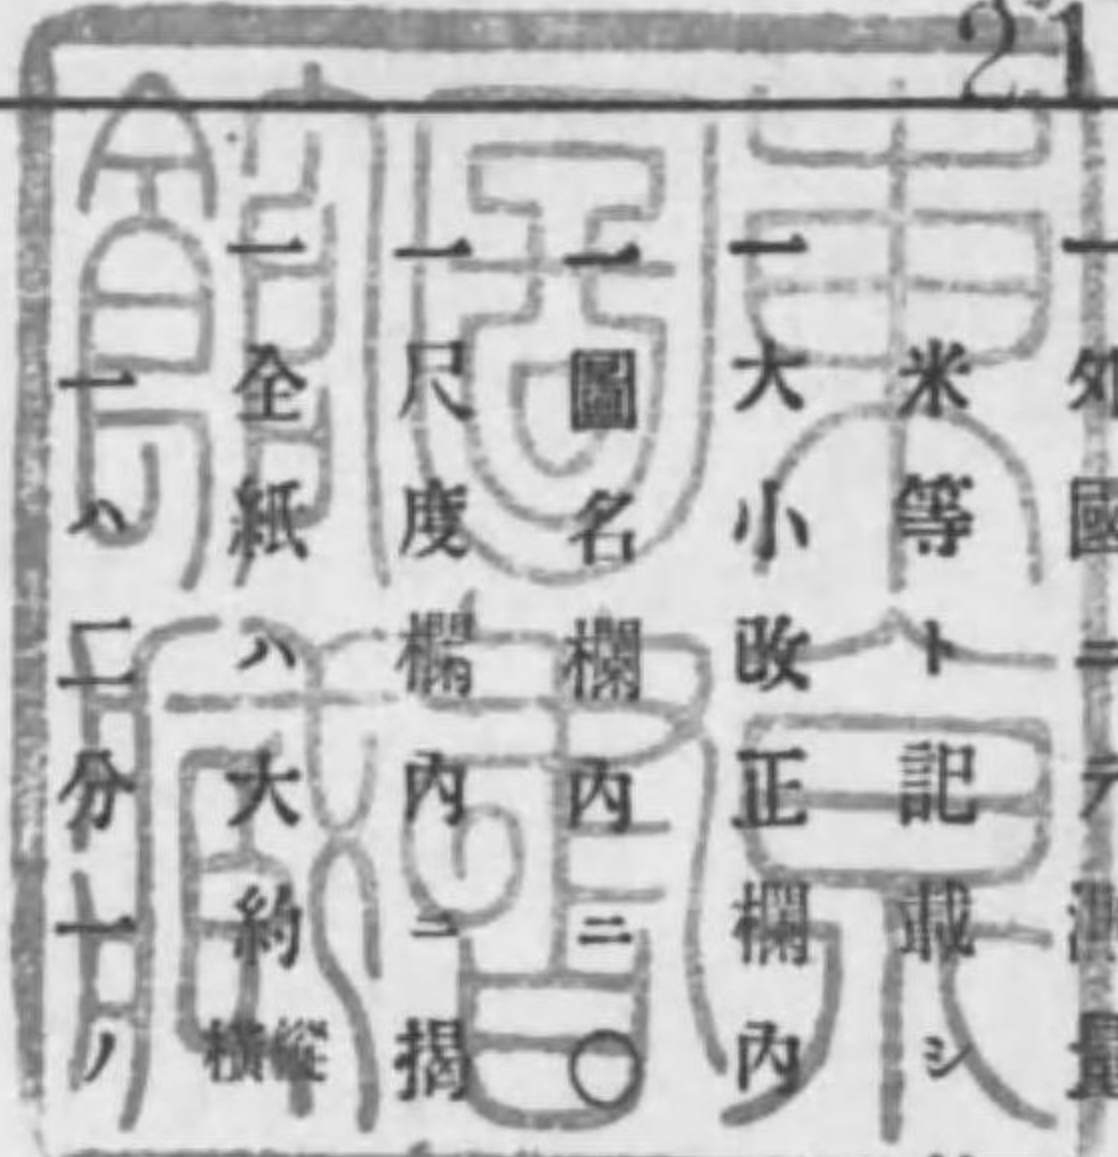 21
一外國ニテ測量
米等ト記載シ
一大小改正欄內
一圖名欄內ニ〇
一尺度欄內ニ揭
一全紙ハ大約縱橫
一ハ二分一ノ
東京圖書館藏